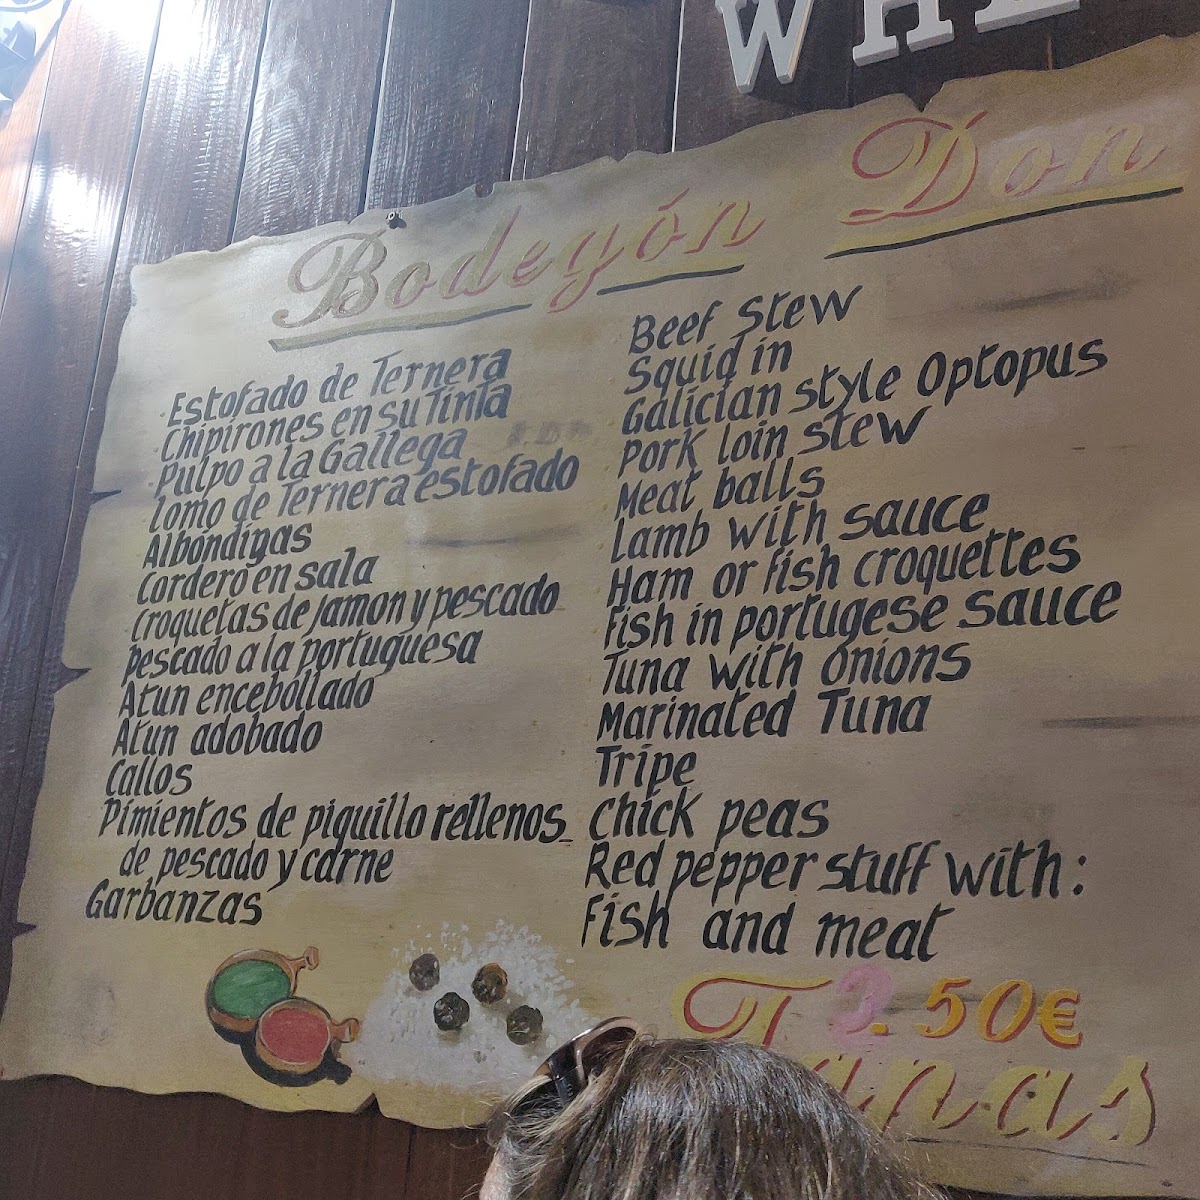 WHE
Bodegón Don
Estofado de Ternera
Chipirones en su Tinta
Pulpo a la Gallega
Lomo de Ternera estofado
Albondigas
Cordero en sala
Croquetas de Jamon y pescado
Pescado a la portuguesa
Atun encebollado
Atun adobado
Callos
Pimientos de piquillo rellenos
de pescado y carne
Garbanzas
Beef Stew
Squid in
Galician style Optopus
Pork loin stew
Meat balls
Lamb with sauce
Ham or fish croquettes
Fish in portugese sauce
Tuna with onions
Marinated Tuna
Tripe
Chick peas
Red pepper stuff with:
Fish and meat
2.50€
Tapas